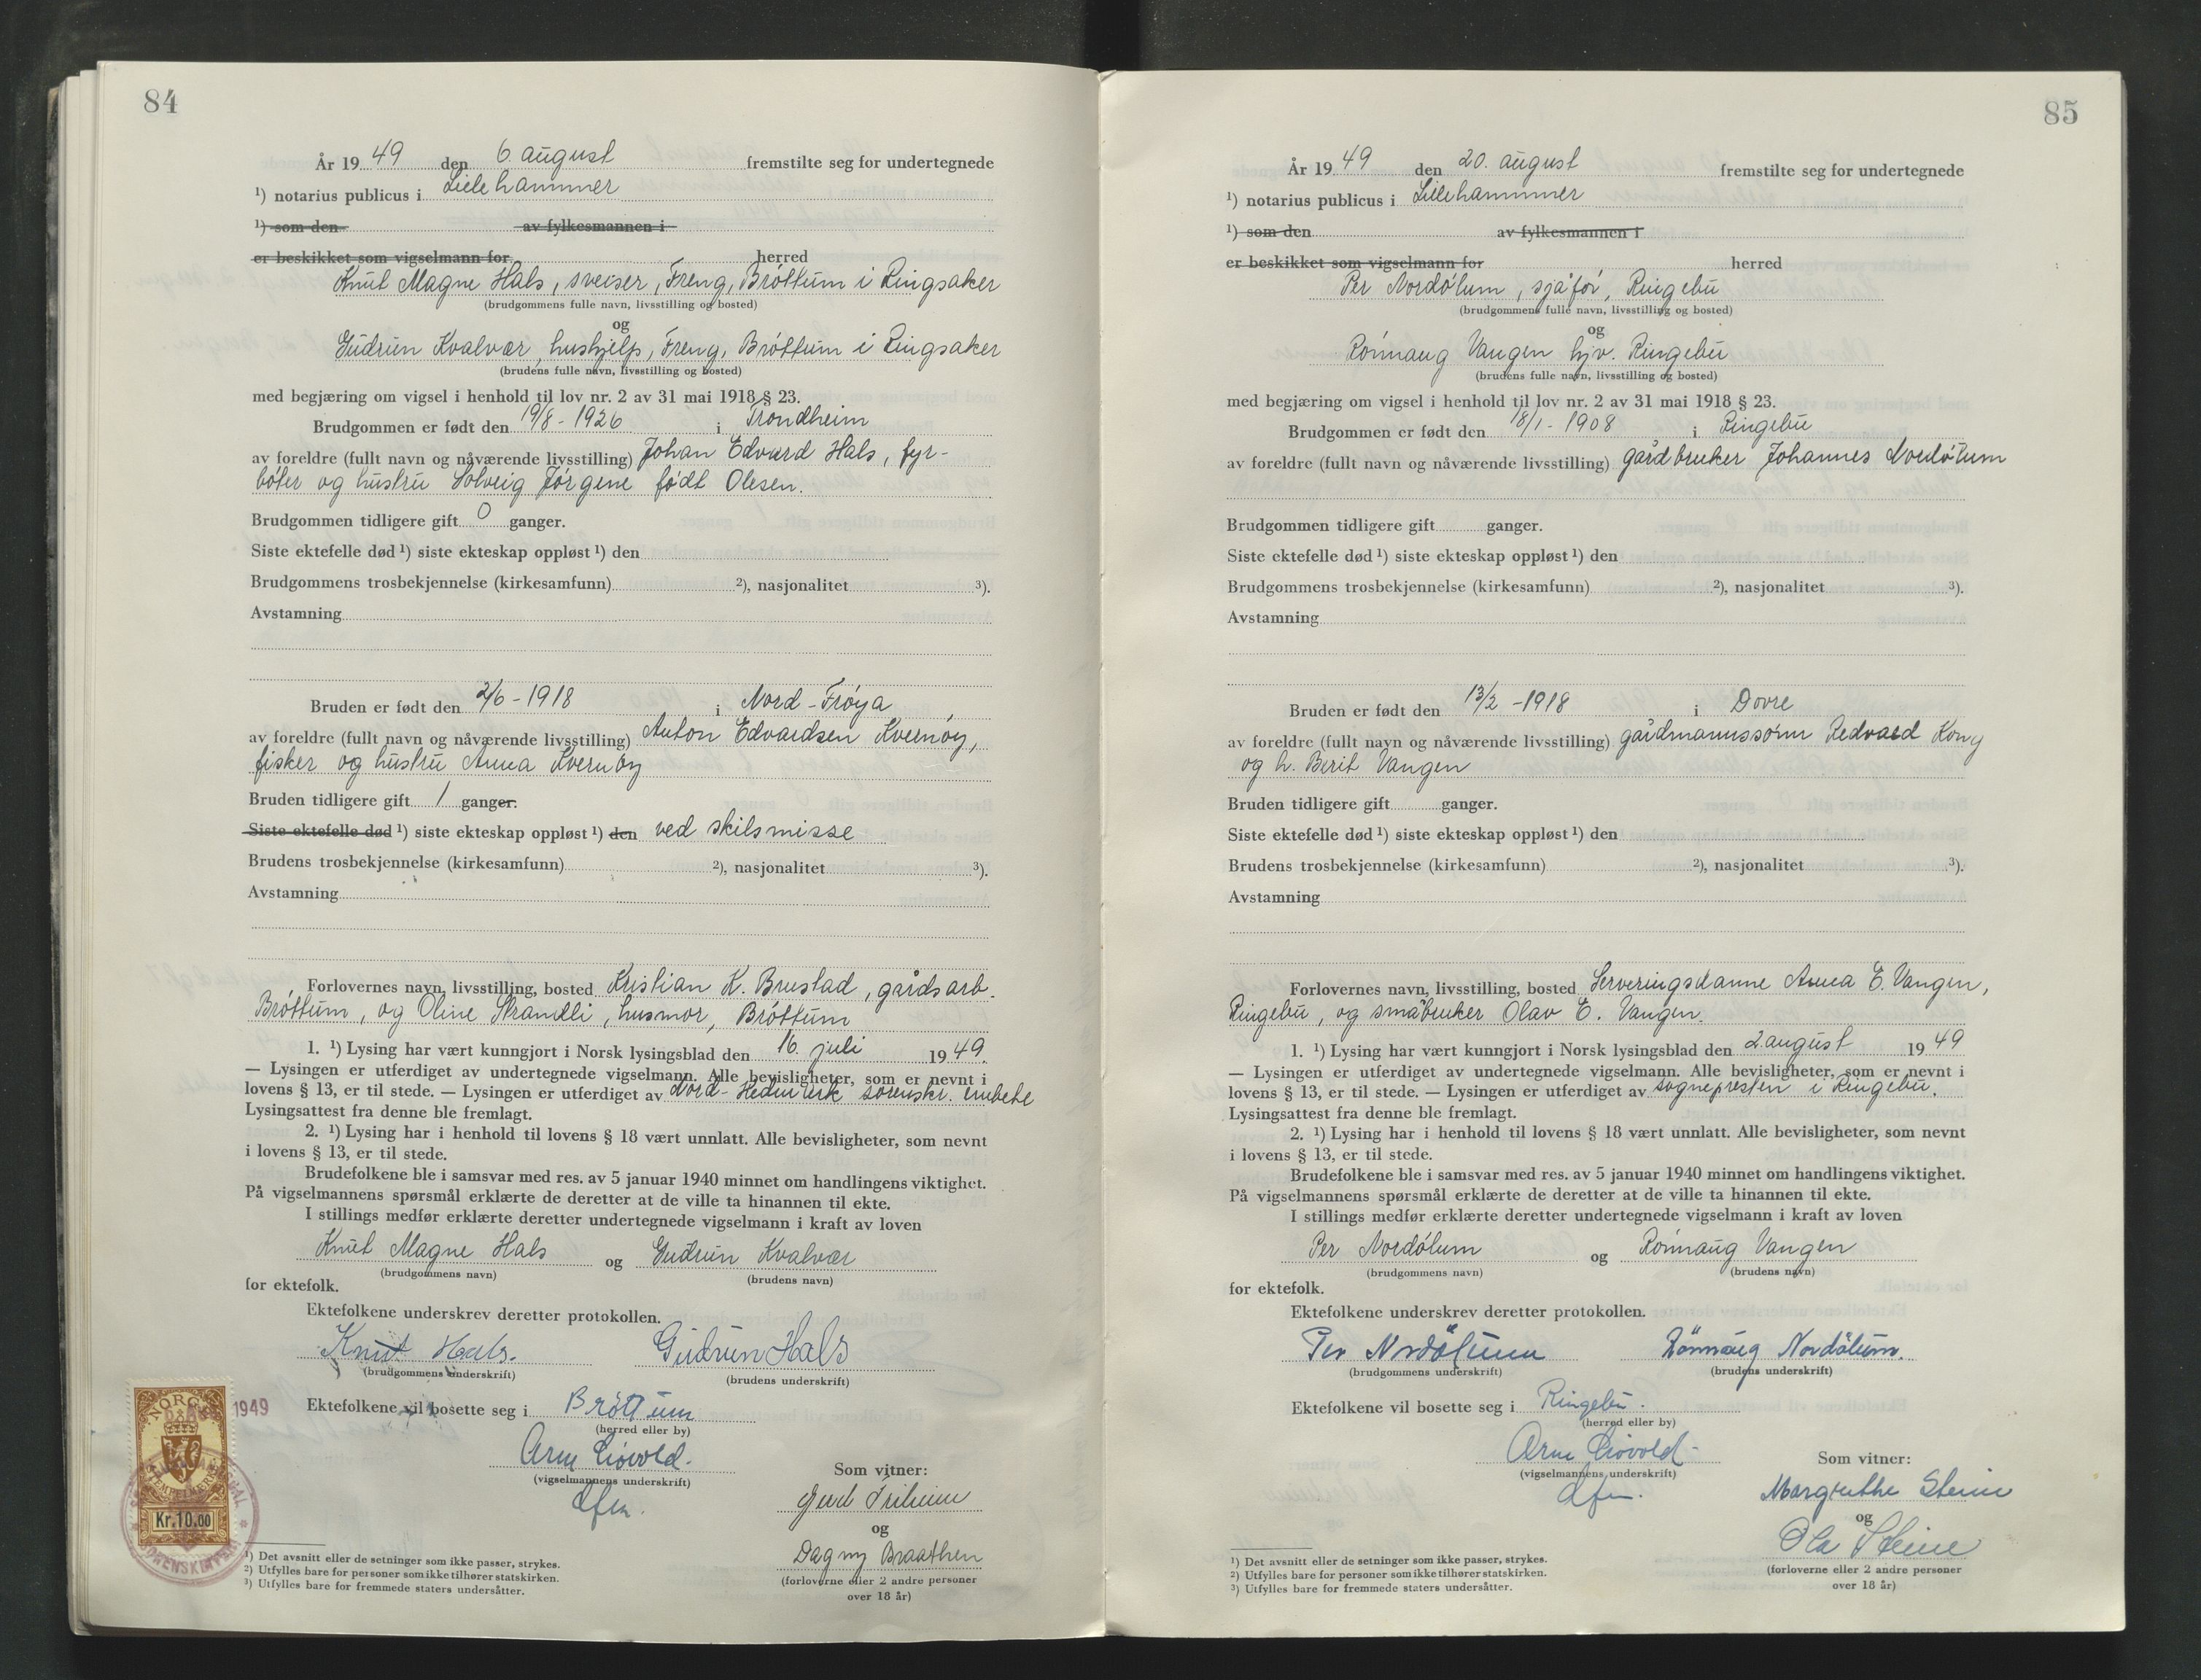 84
År 19 49 den 6. august fremstilte seg for undertegnede
¹) notarius publicus i Lillehammer
¹) som den av fylkesmannen i
er beskikket som vigselmann for herred
Knut Magne Hals, sveiser, Freng, Brøttum i Ringsaker
(brudgommens fulle navn, livsstilling og bosted)
og
Gudrun Kvalvær, hushjelp, Freng, Brøttum i Ringsaker
(brudens fulle navn, livsstilling og bosted)
med begjæring om vigsel i henhold til lov nr. 2 av 31 mai 1918 § 23.
Brudgommen er født den 19/8 - 1926 i Trondheim
av foreldre (fullt navn og nåværende livsstilling) Johan Edvard Hals, fyr-
bøter og hustru Solveig Jørgene født Olesen.
Brudgommen tidligere gift 0 ganger.
Siste ektefelle død ¹) siste ekteskap oppløst ¹) den
Brudgommens trosbekjennelse (kirkesamfunn) ²), nasjonalitet ³).
Avstamning
Bruden er født den 2/6 - 1918 i Nord-Frøya
av foreldre (fullt navn og nåværende livsstilling) Anton Edvardsen Kvernøy,
fisker og hustru Anna Kvernøy
Bruden tidligere gift 1 ganger.
Siste ektefelle død ¹) siste ekteskap oppløst ¹) den ved skilsmisse
Brudens trosbekjennelse (kirkesamfunn) ²), nasjonalitet ³).
Avstamning
Forlovernes navn, livsstilling, bosted Kristian K. Brustad, gårdsarb.
Brøttum, og Oline Strandli, husmor, Brøttum
1. ¹) Lysing har vært kunngjort i Norsk lysingsblad den 16. juli 19 49.
— Lysingen er utferdiget av undertegnede vigselmann. Alle bevisligheter, som er nevnt i
lovens § 13, er til stede. — Lysingen er utferdiget av Nord-Hedmark sorenskr. embete
Lysingsattest fra denne ble fremlagt.
2. ¹) Lysing har i henhold til lovens § 18 vært unnlatt. Alle bevisligheter, som nevnt
i lovens § 13, er til stede.
Brudefolkene ble i samsvar med res. av 5 januar 1940 minnet om handlingens viktighet.
På vigselmannens spørsmål erklærte de deretter at de ville ta hinannen til ekte.
I stillings medfør erklærte deretter undertegnede vigselmann i kraft av loven
Knut Magne Hals og Gudrun Kvalvær
(brudgommens navn) (brudens navn)
for ektefolk.
Ektefolkene underskrev deretter protokollen.
Knut Hals. Gudrun Hals
(brudgommens underskrift) (brudens underskrift)
1949
Ektefolkene vil bosette seg i Brøttum
(herred eller by)
NORGE
Kr.10.00
(vigselmannens underskrift)
Som vitner:
og
Dagny Braathen
(forloverne eller 2 andre personer
over 18 år)
¹) Det avsnitt eller de setninger som ikke passer, strykes.
²) Utfylles bare for personer som ikke tilhører statskirken.
³) Utfylles bare for fremmede staters undersåtter.
85
År 19 49 den 20. august fremstilte seg for undertegnede
¹) notarius publicus i Lillehammer
¹) som den av fylkesmannen i
er beskikket som vigselmann for herred
Per Nordølum, sjåfør, Ringebu
(brudgommens fulle navn, livsstilling og bosted)
og
Rønnaug Vangen hjv. Ringebu
(brudens fulle navn, livsstilling og bosted)
med begjæring om vigsel i henhold til lov nr. 2 av 31 mai 1918 § 23.
Brudgommen er født den 18/1 - 1908 i Ringebu
av foreldre (fullt navn og nåværende livsstilling) gårdbruker Johannes Nordølum
Brudgommen tidligere gift ganger.
Siste ektefelle død ¹) siste ekteskap oppløst ¹) den
Brudgommens trosbekjennelse (kirkesamfunn) ²), nasjonalitet ³).
Avstamning
Bruden er født den 13/2 - 1918 i Dovre
av foreldre (fullt navn og nåværende livsstilling) gårdmannssønn Redvald Kong
og h. Berit Vangen
Bruden tidligere gift ganger.
Siste ektefelle død ¹) siste ekteskap oppløst ¹) den
Brudens trosbekjennelse (kirkesamfunn) ²), nasjonalitet ³).
Avstamning
Forlovernes navn, livsstilling, bosted Serveringsdame Anna E. Vangen,
Ringebu, og småbruker Olav E. Vangen.
1. ¹) Lysing har vært kunngjort i Norsk lysingsblad den 2 august 19 49
— Lysingen er utferdiget av undertegnede vigselmann. Alle bevisligheter, som er nevnt i
lovens § 13, er til stede. — Lysingen er utferdiget av sognepresten i Ringebu.
Lysingsattest fra denne ble fremlagt.
2. ¹) Lysing har i henhold til lovens § 18 vært unnlatt. Alle bevisligheter, som nevnt
i lovens § 13, er til stede.
Brudefolkene ble i samsvar med res. av 5 januar 1940 minnet om handlingens viktighet.
På vigselmannens spørsmål erklærte de deretter at de ville ta hinannen til ekte.
I stillings medfør erklærte deretter undertegnede vigselmann i kraft av loven
Per Nordølum og Rønnaug Vangen
(brudgommens navn) (brudens navn)
for ektefolk.
Ektefolkene underskrev deretter protokollen.
Per Nordølum Rönnaug Nordölum.
(brudgommens underskrift) (brudens underskrift)
Ektefolkene vil bosette seg i Ringebu.
(herred eller by)
(vigselmannens underskrift)
Som vitner:
Margrethe Steine
og
Ola Steine
(forloverne eller 2 andre personer
over 18 år)
¹) Det avsnitt eller de setninger som ikke passer, strykes.
²) Utfylles bare for personer som ikke tilhører statskirken.
³) Utfylles bare for fremmede staters undersåtter.